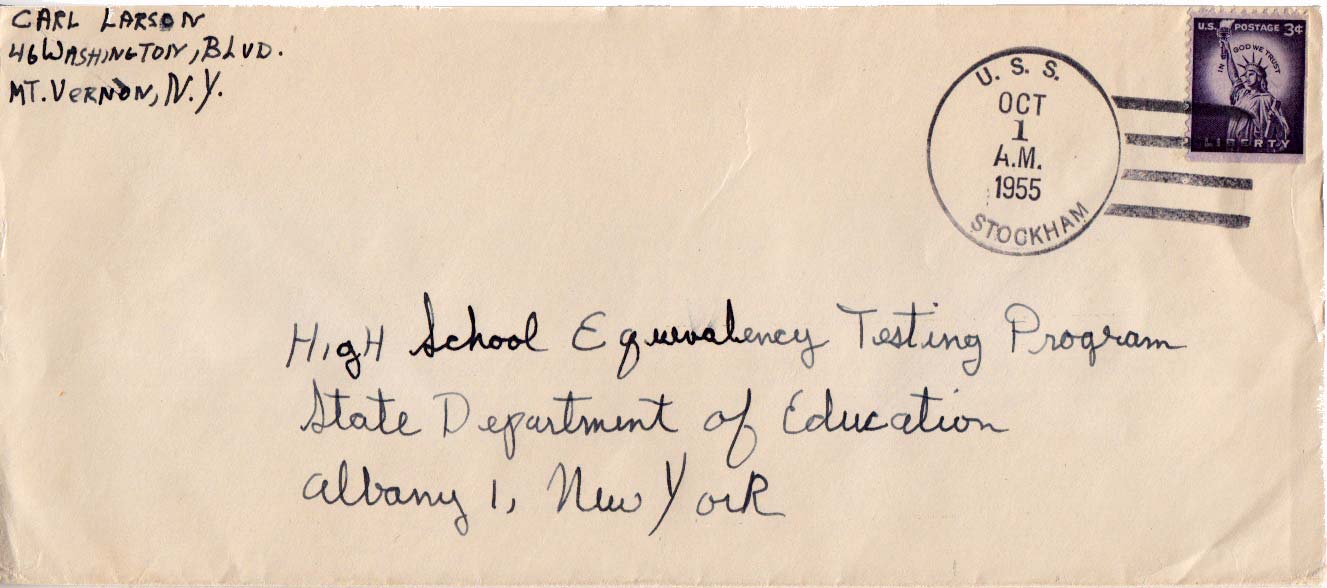 CARL LARSON
46 WASHINGTON, BLVD.
MT. VERNON, N.Y.
U.S. POSTAGE 3¢
IN GOD WE TRUST
LIBERTY
U. S. S.
OCT
1
A.M.
1955
STOCKHAM
HigH School Equivalency Testing Program
State Department of Education
Albany 1, New York